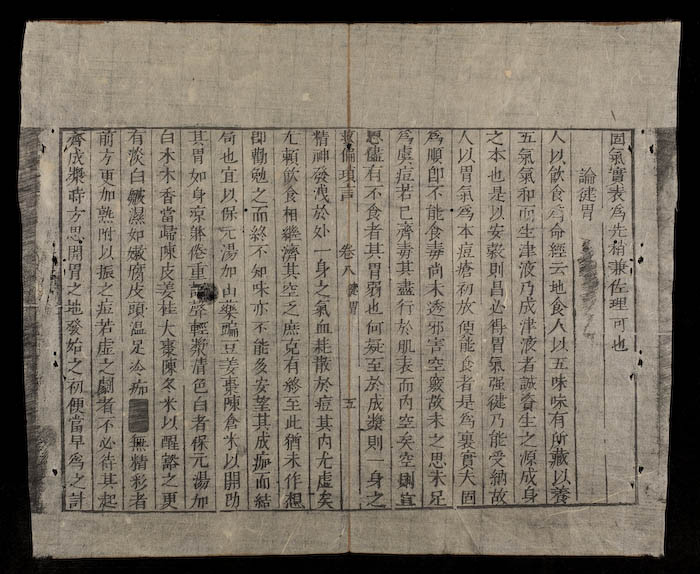 固氣實表為先稍兼佐理可也
論健胃
人以飲食為命經云地食人以五味味有所藏以養
五氣氣和而生津液乃成津液者誠資生之源成身
之本也是以安穀則昌必得胃氣强健乃能受納故
人以胃氣為本痘瘡初放便能食者是為裏實大固
為順卽不能食毒尚未透邪害空竅故未之思未足
為虞痘若已齊毒其盡行於肌表而內空矣空則宜
思儘有不食者其胃弱也何疑至於成漿則一身之
救偏瑣言 卷八 健胃 五
精神發洩於外一身之氣血耗散於痘其內尤虛矣
尤賴飲食相繼濟其空之庶克有終至此猶未作想
卽勸勉之而終不知味亦不能多安望其成痂而結
局也宜以保元湯加山藥扁豆姜棗陳倉米以開助
其胃如身凉體倦重語聲輕漿清色白者保元湯加
白朮木香當歸陳皮姜桂大棗陳冬米以醒豁之更
有淡白皺濕如嫩腐皮頭溫足冷痂無精彩者
前方更加熟附以振之痘若虛之劇者不必待其起
齊成漿時方思開胃之地發始之初便當早為之計